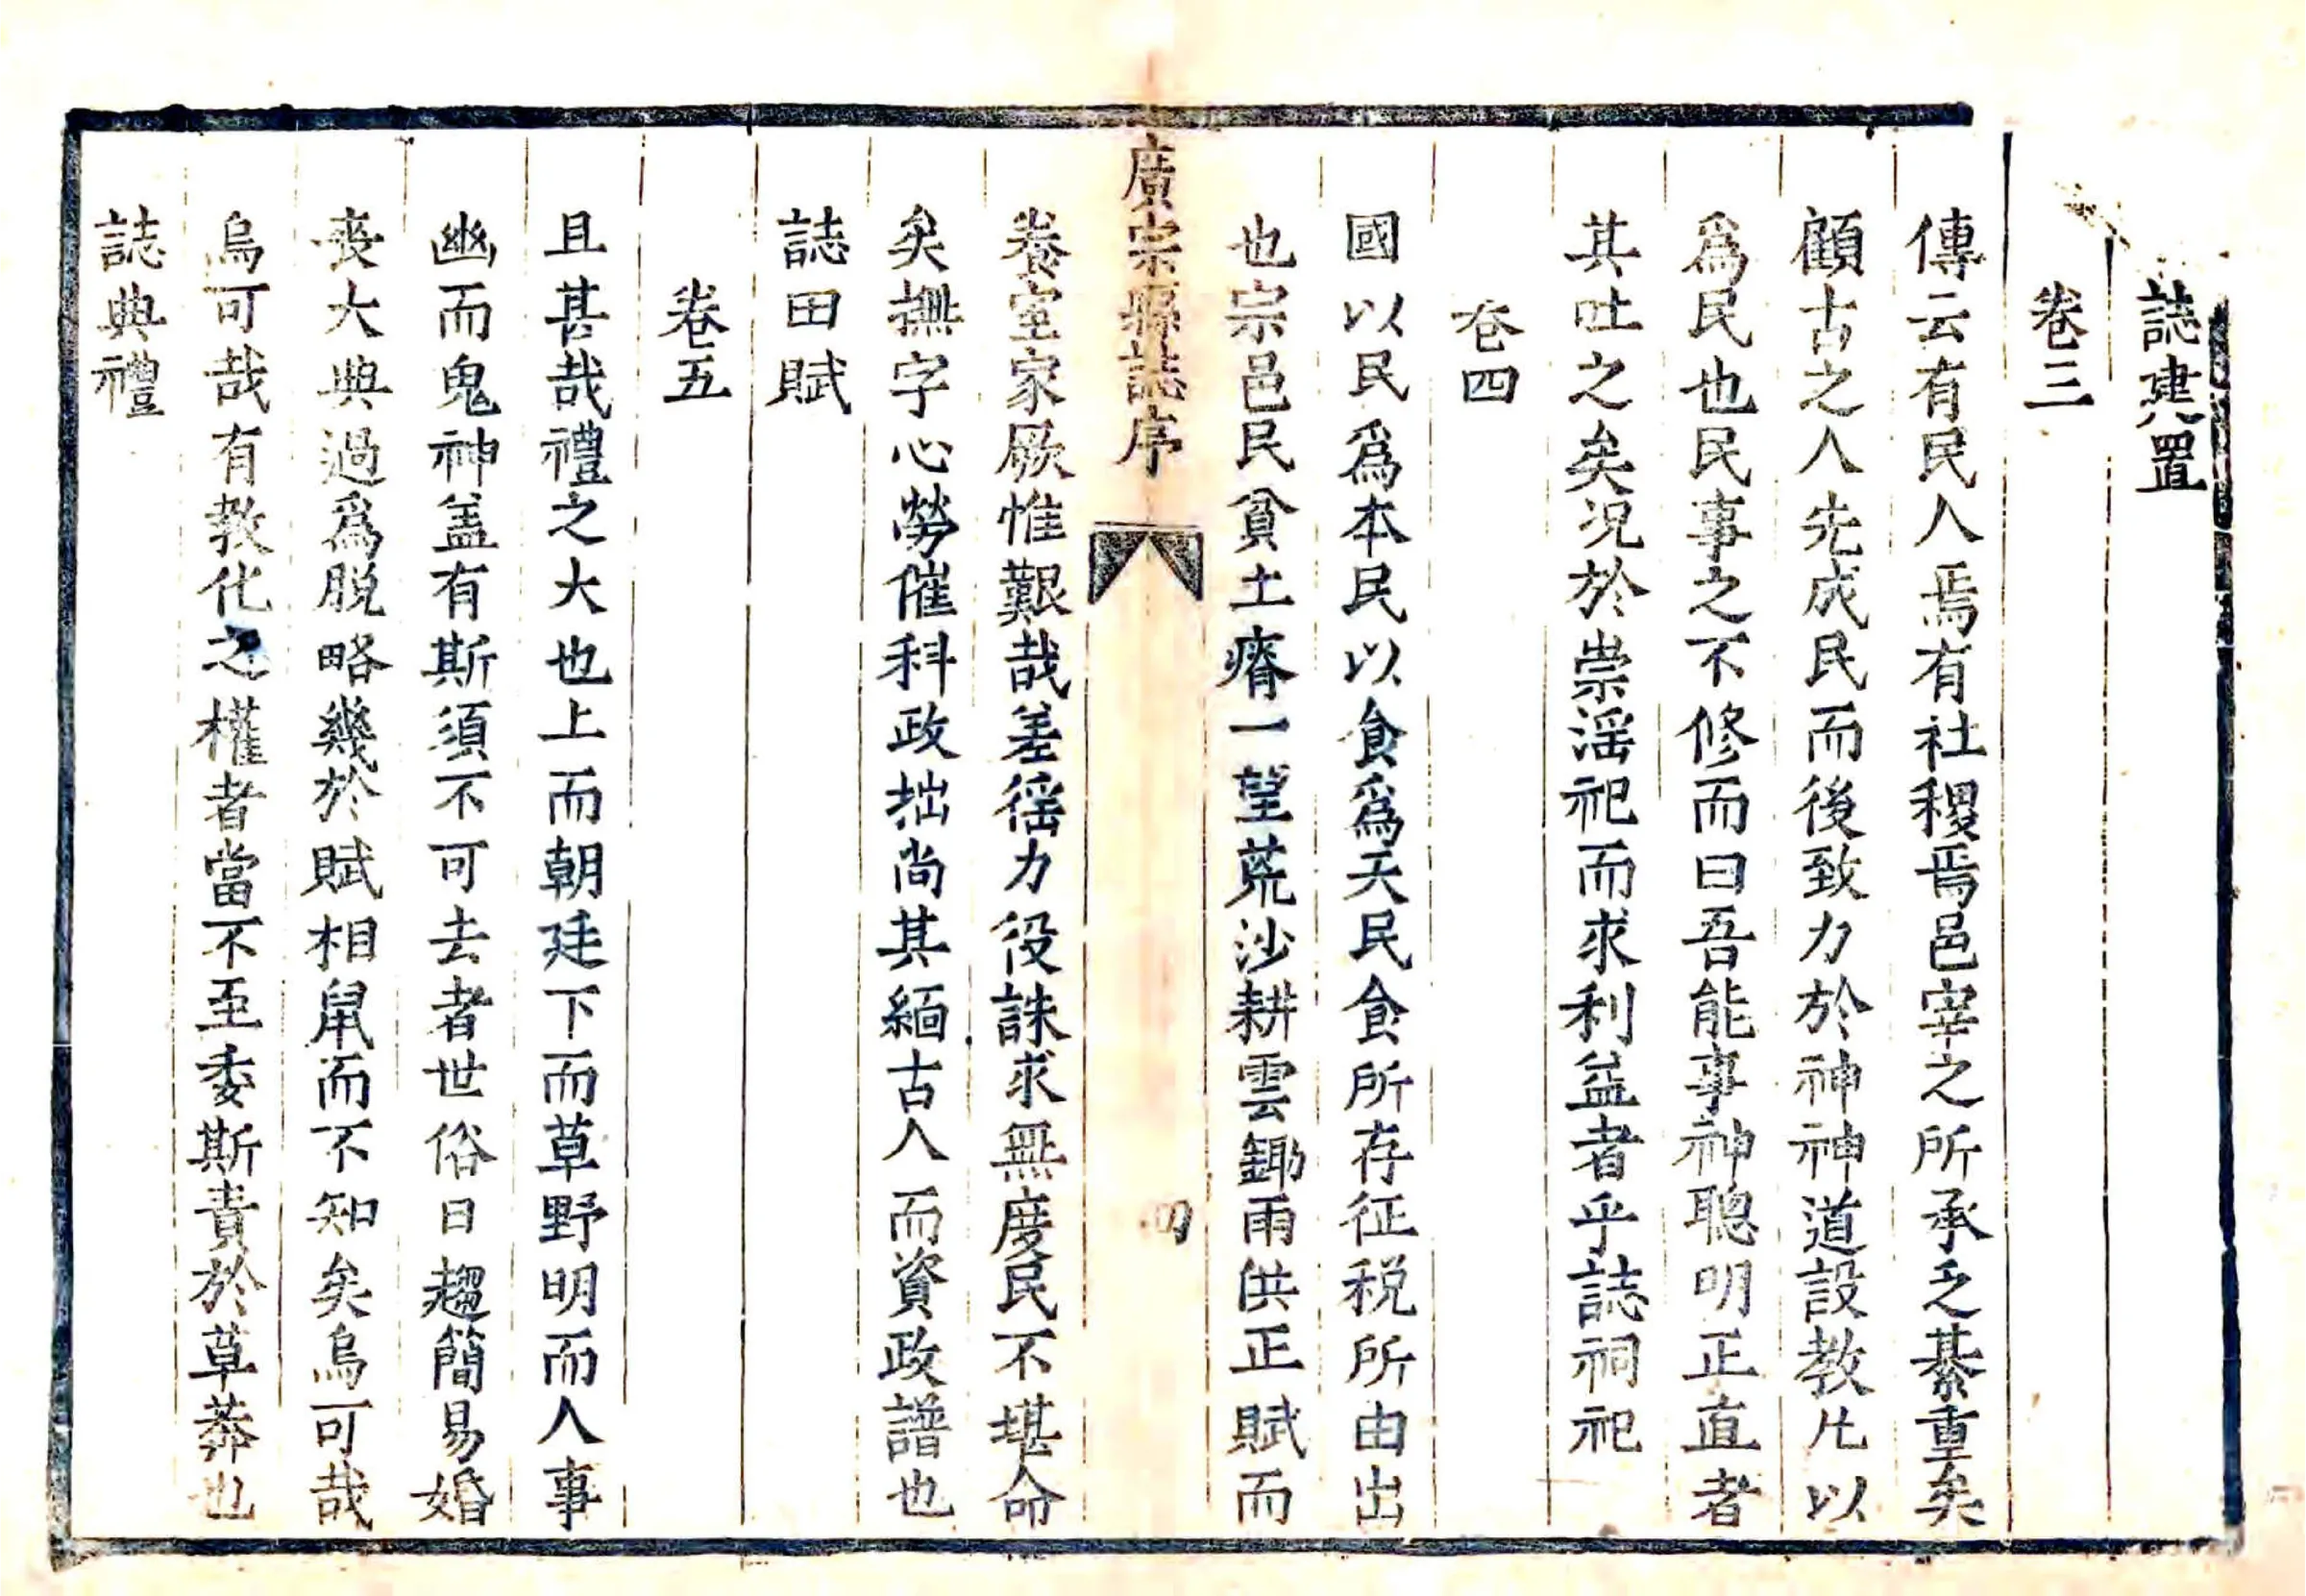 誌建置
卷三
傳云有民人焉有社稷焉邑宰之所承乏綦重矣
顧古之人先成民而後致力於神神道設教凡以
爲民也民事之不修而曰吾能事神聰明正直者
其吐之矣況於崇淫祀而求利益者乎誌祠祀
卷四
國以民爲本民以食爲天民食所存征稅所由出
也宗邑民貧土瘠一望荒沙耕雲鋤雨供正賦而
養室家厥惟艱哉差徭力役誅求無度民不堪命
矣撫字心勞催科政拙尚其緬古人而資政譜也
誌田賦
卷五
且甚哉禮之大也上而朝廷下而草野明而人事
幽而鬼神盖有斯須不可去者世俗日趨簡易婚
喪大典過爲脱略幾於賦相鼠而不知矣烏可哉
烏可哉有教化之權者當不至委斯責於草莽也
誌典禮
廣宗縣誌序
四